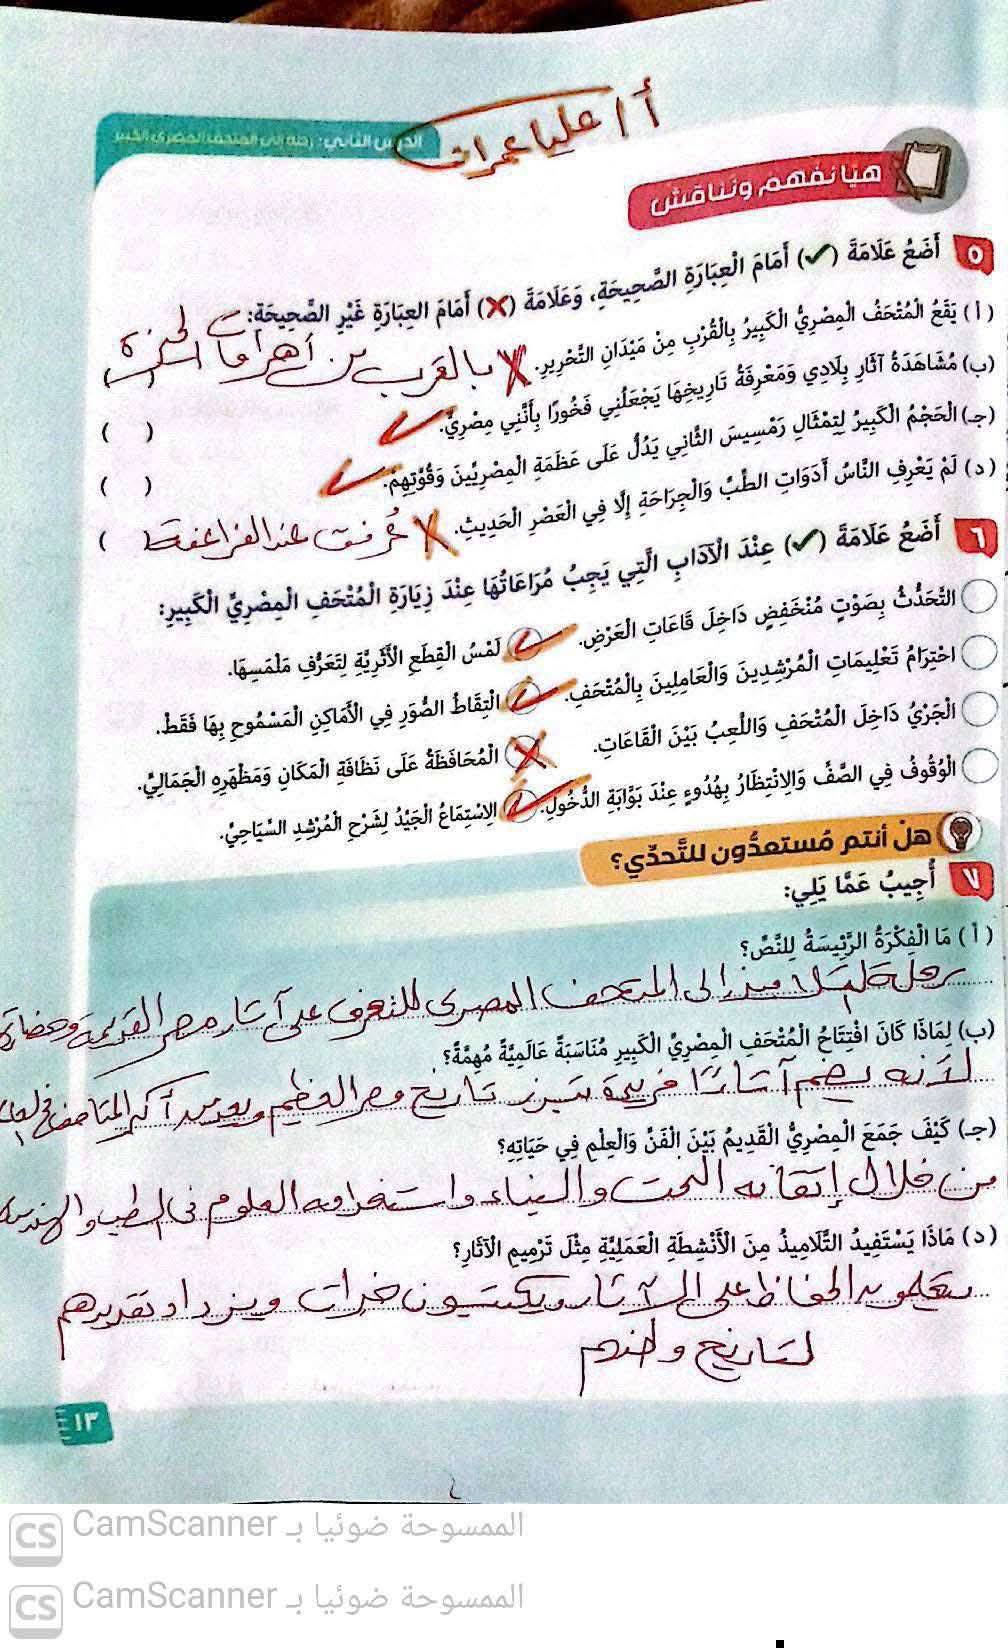 أ / علياء عمران
الدرس الثاني: رحلة إلى المتحف المصري الكبير
هيا نفهم ونناقش
٥ أَضَعُ عَلَامَةَ (✓) أَمَامَ الْعِبَارَةِ الصَّحِيحَةِ، وَعَلَامَةَ (✗) أَمَامَ العِبَارَةِ غَيْرِ الصَّحِيحَةِ:
(أ) يَقَعُ الْمُتْحَفُ الْمِصْرِيُّ الْكَبِيرُ بِالْقُرْبِ مِنْ مَيْدَانِ التَّحْرِيرِ. ✗ بالقرب من أهرامات الجيزة ( )
(ب) مُشَاهَدَةُ آثَارِ بِلَادِي وَمَعْرِفَةُ تَارِيخِهَا يَجْعَلُنِي فَخُورًا بِأَنَّنِي مِصْرِيٌّ. ✓ ( )
(جـ) الْحَجْمُ الْكَبِيرُ لِتِمْثَالِ رَمْسِيسَ الثَّانِي يَدُلُّ عَلَى عَظَمَةِ الْمِصْرِيِّينَ وَقُوَّتِهِمْ. ✓ ( )
(د) لَمْ يَعْرِفِ النَّاسُ أَدَوَاتِ الطِّبِّ وَالْجِرَاحَةِ إِلَّا فِي الْعَصْرِ الْحَدِيثِ. ✗ عُرفت عند الفراعنة ( )
٦ أَضَعُ عَلَامَةَ (✓) عِنْدَ الْآدَابِ الَّتِي يَجِبُ مُرَاعَاتُهَا عِنْدَ زِيَارَةِ الْمُتْحَفِ الْمِصْرِيِّ الْكَبِيرِ:
التَّحَدُّثُ بِصَوْتٍ مُنْخَفِضٍ دَاخِلَ قَاعَاتِ الْعَرْضِ. ✓ لَمْسُ الْقِطَعِ الْأَثَرِيَّةِ لِتَعَرُّفِ مَلْمَسِهَا.
احْتِرَامُ تَعْلِيمَاتِ الْمُرْشِدِينَ وَالْعَامِلِينَ بِالْمُتْحَفِ. ✓ الْتِقَاطُ الصُّوَرِ فِي الْأَمَاكِنِ الْمَسْمُوحِ بِهَا فَقَطْ.
الْجَرْيُ دَاخِلَ الْمُتْحَفِ وَاللَّعِبُ بَيْنَ الْقَاعَاتِ. ✗ الْمُحَافَظَةُ عَلَى نَظَافَةِ الْمَكَانِ وَمَظْهَرِهِ الْجَمَالِيِّ.
الْوُقُوفُ فِي الصَّفِّ وَالِانْتِظَارُ بِهُدُوءٍ عِنْدَ بَوَّابَةِ الدُّخُولِ. ✓ الِاسْتِمَاعُ الْجَيِّدُ لِشَرْحِ الْمُرْشِدِ السِّيَاحِيِّ.
هل أنتم مُستعدُّون للتَّحدِّي؟
٧ أُجِيبُ عَمَّا يَلِي:
(أ) مَا الْفِكْرَةُ الرَّئِيسَةُ لِلنَّصِّ؟
رحلة التلاميذ إلى المتحف المصرى للتعرف على آثار مصر القديمة وحضارتها
(ب) لِمَاذَا كَانَ افْتِتَاحُ الْمُتْحَفِ الْمِصْرِيِّ الْكَبِيرِ مُنَاسَبَةً عَالَمِيَّةً مُهِمَّةً؟
لأنه يضم آثارًا فريدة تبرز تاريخ مصر العظيم ويعد من أكبر المتاحف في العالم
(جـ) كَيْفَ جَمَعَ الْمِصْرِيُّ الْقَدِيمُ بَيْنَ الْفَنِّ وَالْعِلْمِ فِي حَيَاتِهِ؟
من خلال إتقانه النحت والبناء واستخدامه العلوم في الطب والهندسة
(د) مَاذَا يَسْتَفِيدُ التَّلَامِيذُ مِنَ الْأَنْشِطَةِ الْعَمَلِيَّةِ مِثْلَ تَرْمِيمِ الْآثَارِ؟
يتعلمون الحفاظ على الآثار ويكتسبون خبرات ويزداد تقديرهم
لتاريخ وطنهم
١٣
CS CamScanner الممسوحة ضوئيا بـ
CS CamScanner الممسوحة ضوئيا بـ